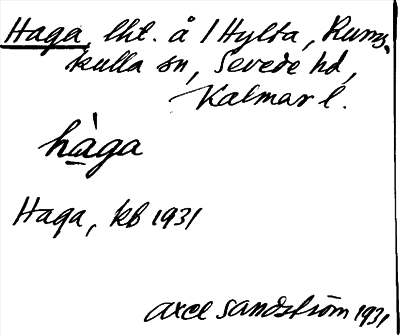 Haga, lht. å 1 Hylta, Rums-
kulla sn, Sevede hd,
Kalmar l.
hàga
Haga, kb 1931
Axel Sandström 1931